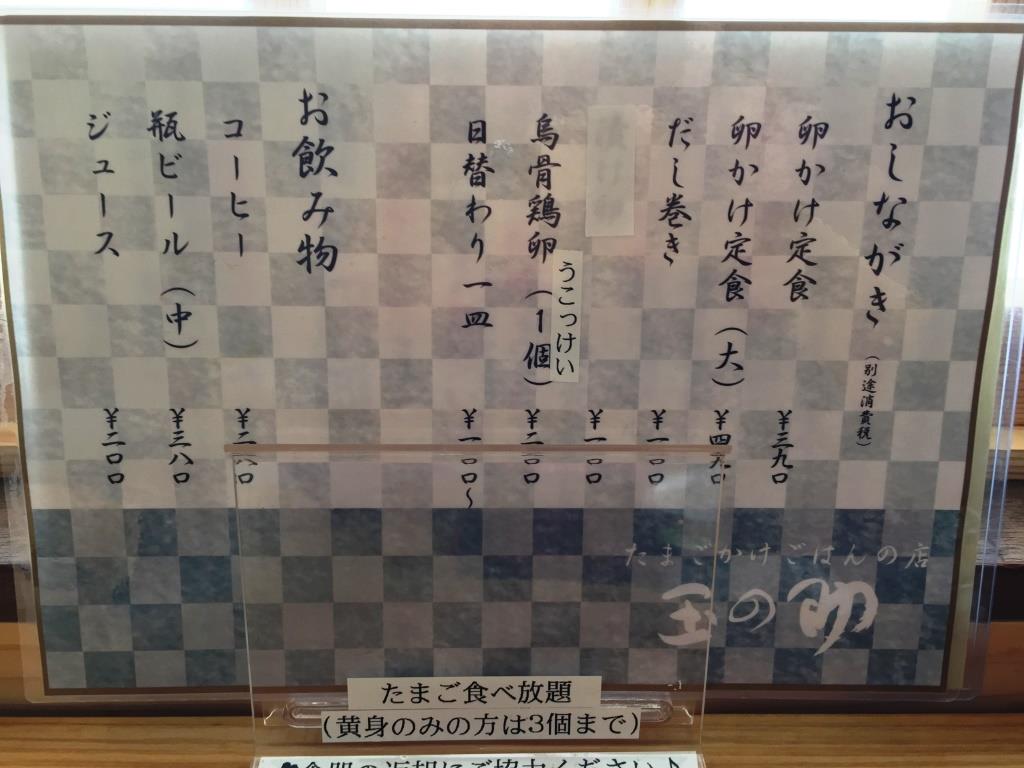 おしながき
(別途消費税)
卵かけ定食
¥三九〇
卵かけ定食(大)
¥四九〇
だし巻き
¥一〇〇
¥一〇〇
烏骨鶏卵(1個)
うこっけい
¥二〇〇
日替わり一皿
¥一〇〇~
お飲み物
コーヒー
¥二八〇
瓶ビール(中)
¥三八〇
ジュース
¥二〇〇
たまごかけごはんの店
玉の助
たまご食べ放題
(黄身のみの方は3個まで)